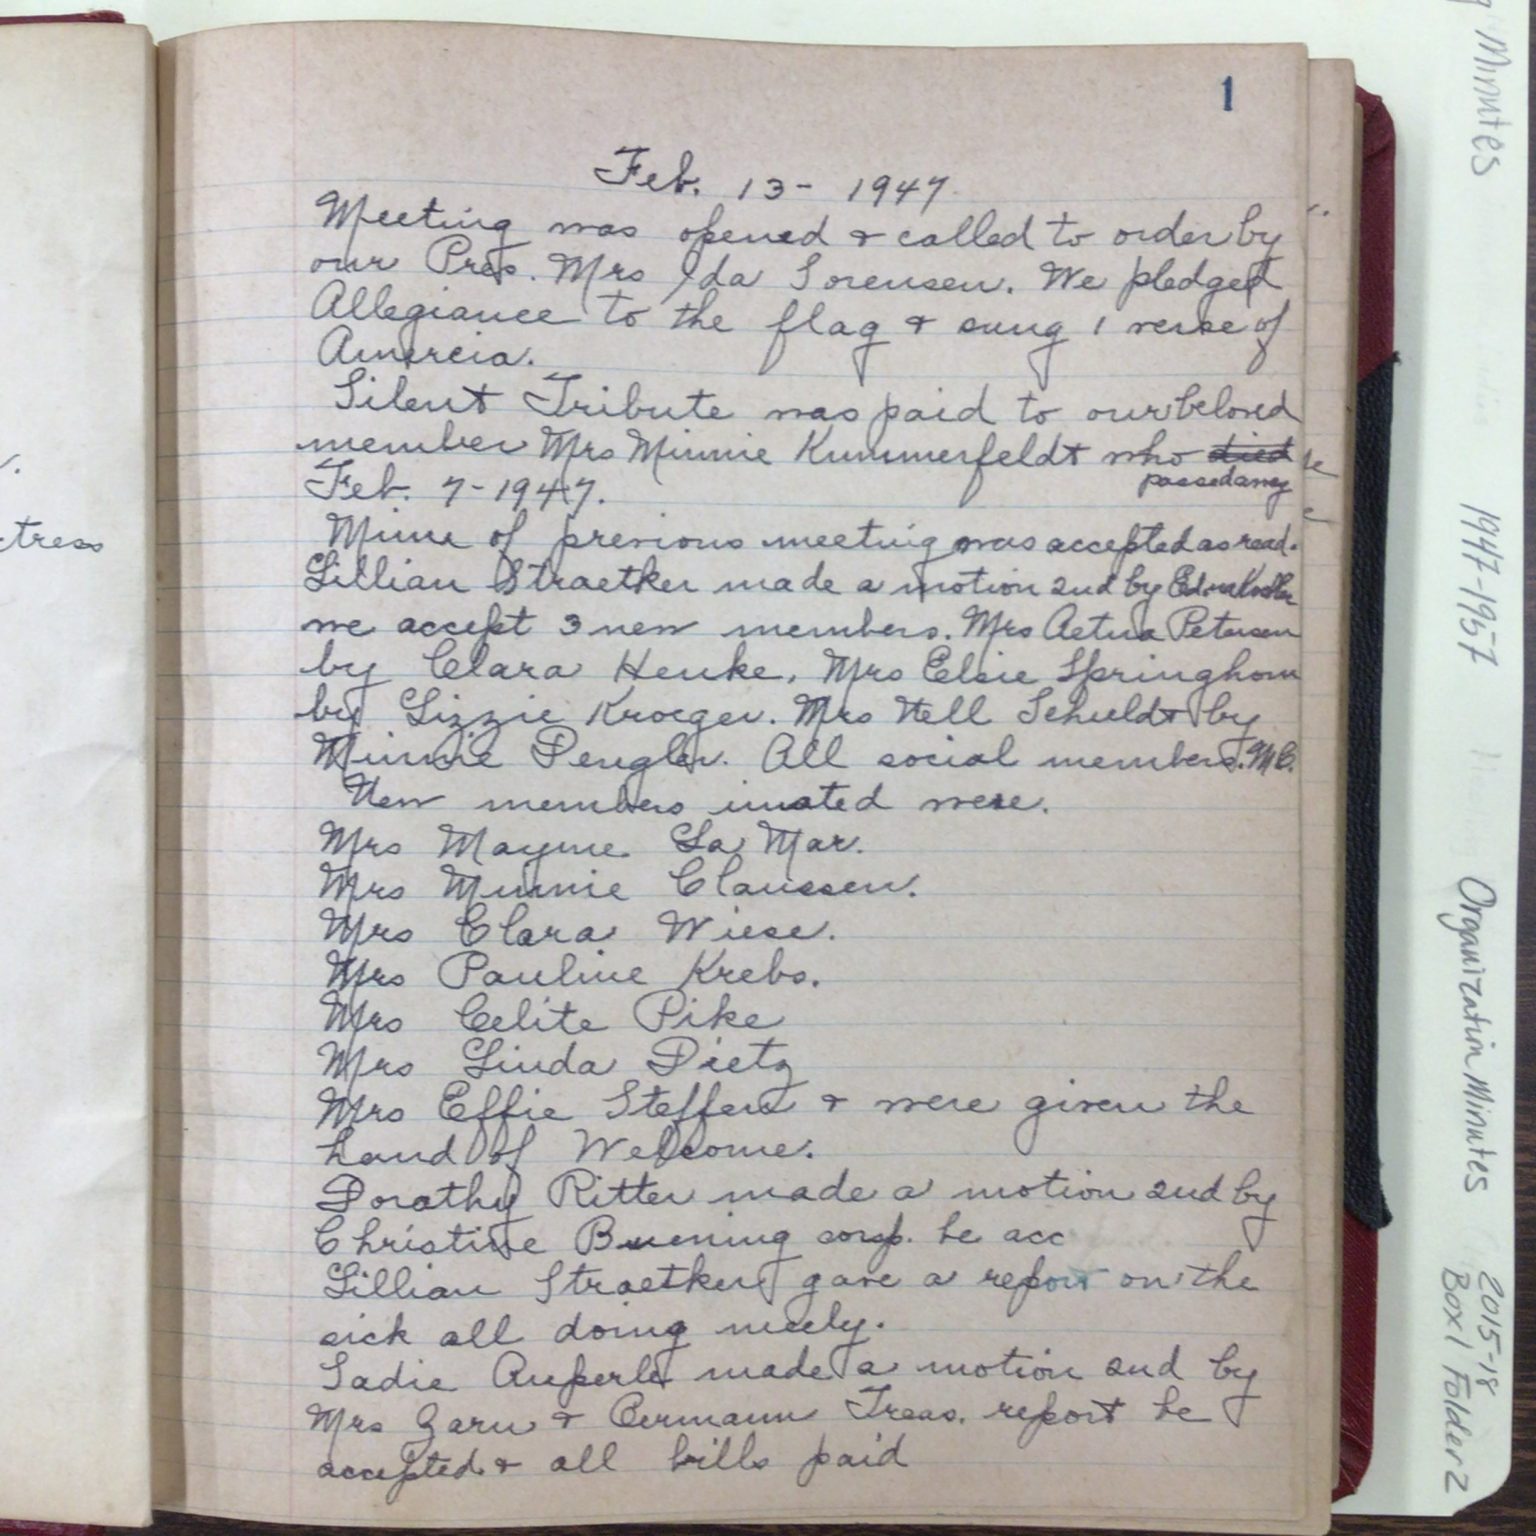 1
Feb. 13 - 1947
Meeting was opened & called to order by
our Pres. Mrs Ida Sorensen. We pledged
Allegiance to the flag & sung 1 verse of
Amercia.
Silent Tribute was paid to our beloved
member Mrs Minnie Kummerfeldt who died
passed away
Feb. 7 - 1947.
of previous meeting was accepted as read.
Lillian Straetker made a motion 2nd by Edna
we accept 3 new members. Mrs Aetna Petersen
by Clara Henke, Mrs Elsie Springhorn
by Lizzie Kroeger. Mrs Nell Schuldt by
Minnie Dengler. All social members. M.C.
New members were.
Mrs Mayme La Mar.
Mrs Minnie Claussen.
Mrs Clara Wiese.
Mrs Pauline Krebs.
Mrs Celite Pike
Mrs Linda Dietz
Mrs Effie Steffen & were given the
hand of Welcome.
Dorathy Ritter made a motion 2nd by
Christine Buening corsp. be acc
Lillian Straetker gave a report on the
sick all doing nicely.
Sadie Auperle made a motion 2nd by
Mrs Zarn & Treas. report be
accepted & all bills paid
ctress
Minutes
1947-1957
Organization Minutes
2015-18
Box 1 Folder 2